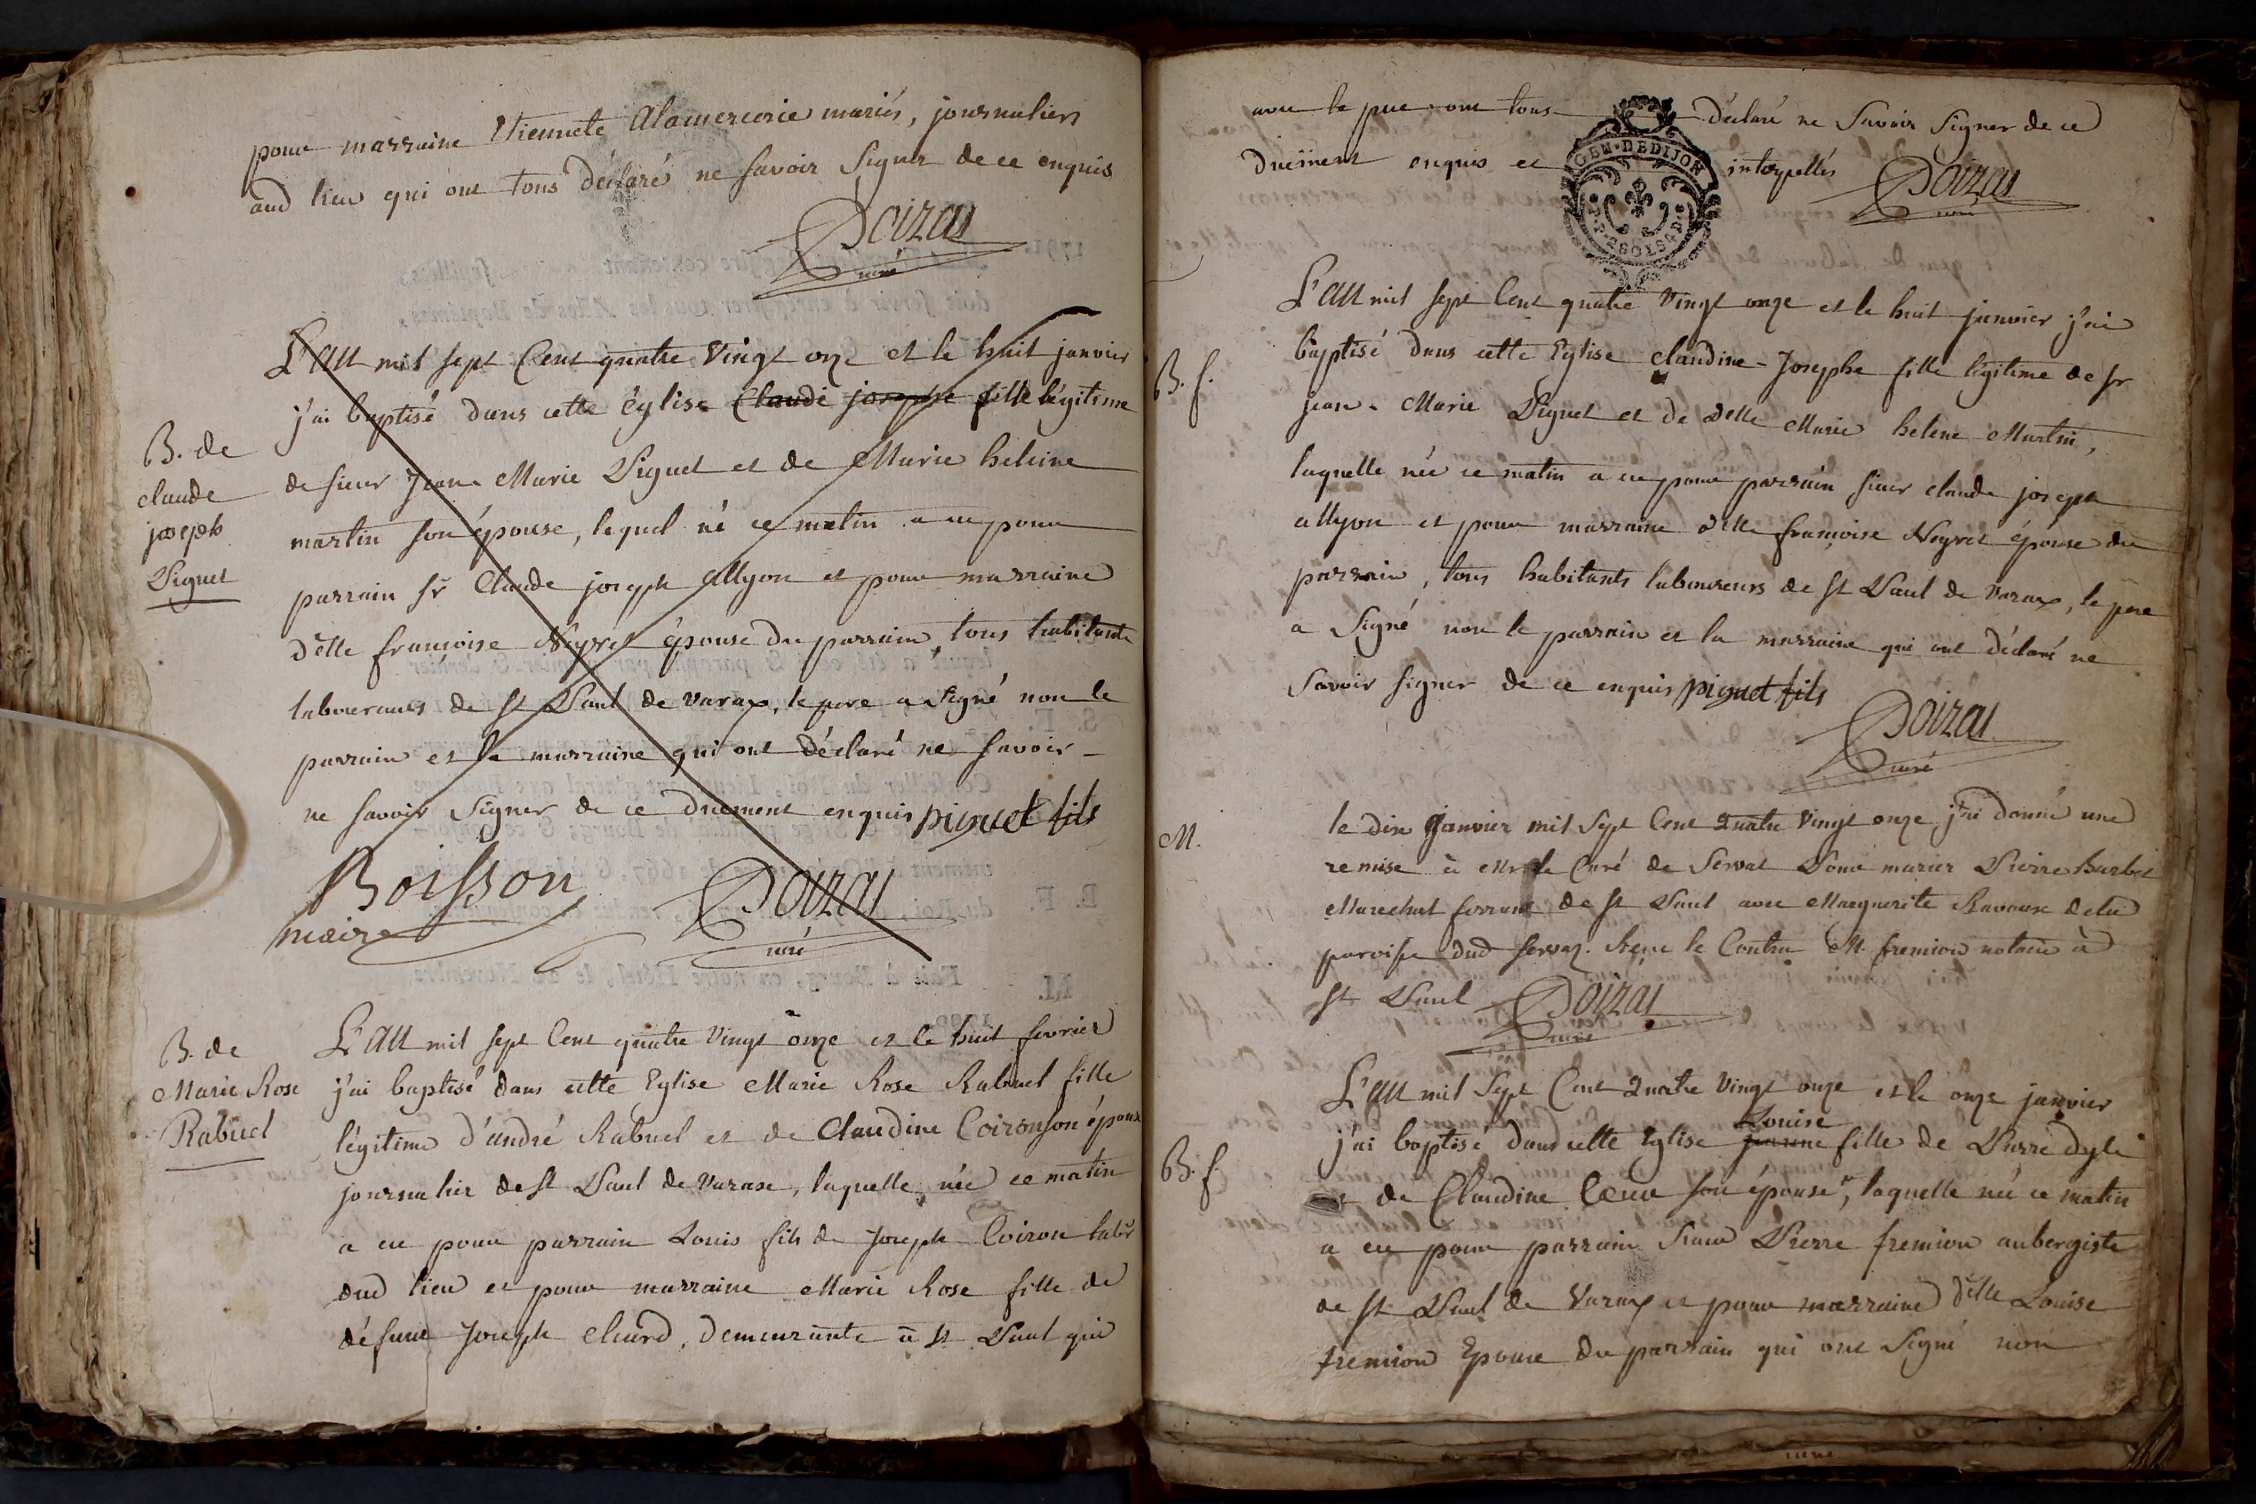 pour marraine Etiennete Alamercerie mariés, journaliers
aud lieu qui ont tous déclaré ne savoir signer de ce enquis
Poizat
curé
L'An mil sept Cent quatre Vingt onze et le huit janvier
j'ai baptisé dans cette église Claude josephe fille légitime
B. de
claude
joseph
Piquet
de sieur Jean Marie Piquet et de Marie heleine
martin son épouse, lequel né ce matin a eu pour
parrain sr Claude joseph Allyon et pour marraine
delle françoise Neyret épouse du parrain, tous habitants
laboureurs de st Paul de varax, le pere a signé non le
parrain et la marraine qui ont déclaré ne savoir
ne savoir signer de ce duement enquis piquet fils
Boisson
maire
Poizat
curé
B. de
Marie Rose
Rabuel
L'An mil sept Cent quatre Vingt onze et le huit fevrier
j'ai baptisé dans cette Eglise Marie Rose Rabuel fille
légitime d'andré Rabuel et de Claudine Coiron son épouse
journalier de st Paul de Varax, laquelle née ce matin
a eu pour parrain Louis fils de Joseph Coiron labr
dud lieu et pour marraine Marie Rose fille de
défunt Joseph demeurante à st Paul qui
avec le pere ont tous déclaré ne Savoir Signer de ce
duement enquis et interpellés
GEN. DE DIJON
Poizat
curé
B. f.
L'An mil sept Cent quatre Vingt onze et le huit janvier j'ai
baptisé dans cette Eglise claudine-Josephe fille légitime de sr
jean-Marie Piquet et de delle Marie helene Martin,
laquelle née ce matin a eu pour parrain sieur claude joseph
allyon et pour marraine delle françoise Neyret épouse du
parrain, tous habitants laboureurs de st Paul de Varax, le pere
a Signé non le parrain et la marraine qui ont déclaré ne
Savoir signer de ce enquis piquet fils
Poizat
curé
M.
le dix Janvier mil Sept Cent Quatre Vingt onze j'ai donné une
remise à Mr le Curé de Servas Pour marier Pierre Barbet
Marechal ferrant de st Paul avec Marguerite Ravoux de la
paroisse dud servaz. Reçu le Contra Mr fremion notaire à
st Paul
Poizat
curé
B. f.
L'An mil Sept Cent Quatre Vingt onze et le onze janvier
Louise
j'ai baptisé dans cette Eglise jeanne fille de Pierre
et de Claudine son épouse, laquelle née ce matin
a eu pour parrain Sieur Pierre fremion aubergiste
de st Paul de Varax et pour marraine delle Louise
fremion Epouse du parrain qui ont Signé non